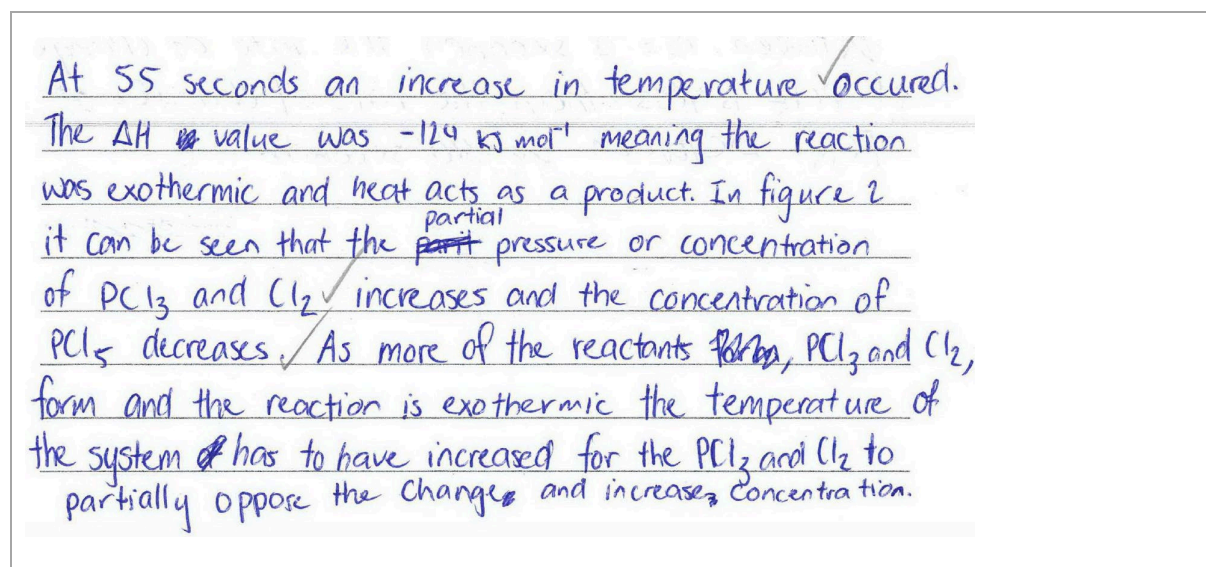 At 55 seconds an increase in temperature occured.
The ΔH value was -124 kJ mol⁻¹ meaning the reaction
was exothermic and heat acts as a product. In figure 2
it can be seen that the partial pressure or concentration
of PCl₃ and Cl₂ increases and the concentration of
PCl₅ decreases. As more of the reactants, PCl₃ and Cl₂,
form and the reaction is exothermic the temperature of
the system has to have increased for the PCl₃ and Cl₂ to
partially oppose the change and increase concentration.